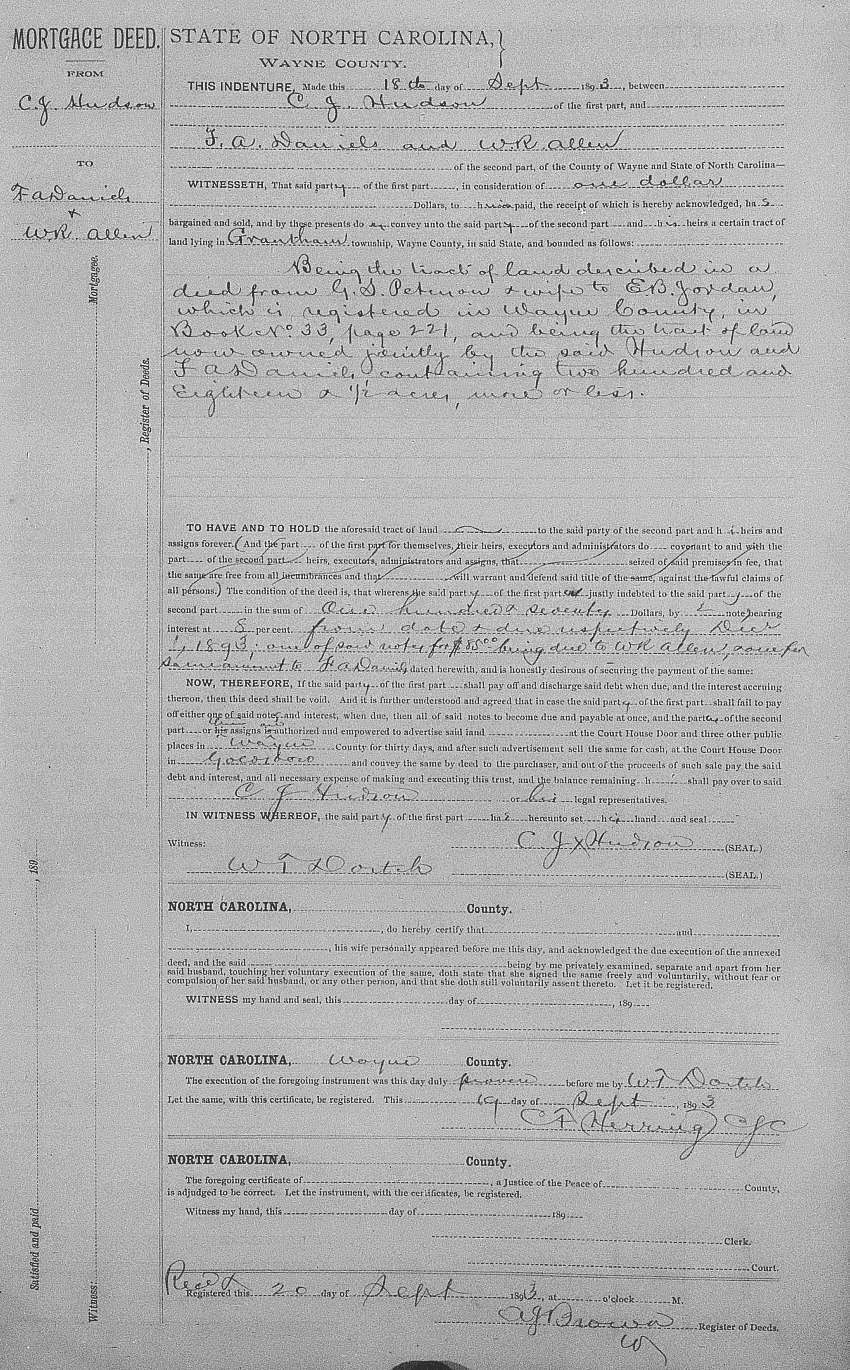 MORTGAGE DEED.
FROM
C. J. Hudson
TO
F A Daniels
&
W R Allen
Mortgagee.
, Register of Deeds.
, 189
Satisfied and paid
Witness:
STATE OF NORTH CAROLINA,
WAYNE COUNTY.
THIS INDENTURE, Made this 18th day of Sept 1893, between
C. J. Hudson of the first part, and
F. A. Daniels and W. R. Allen
of the second part, of the County of Wayne and State of North Carolina—
WITNESSETH, That said party of the first part, in consideration of one dollar
Dollars, to him paid, the receipt of which is hereby acknowledged, has
bargained and sold, and by these presents do convey unto the said party of the second part and his heirs a certain tract of
land lying in Grantham township, Wayne County, in said State, and bounded as follows:
Being the tract of land described in a
deed from G. S. Peterson & wife to E B. Jordan,
which is registered in Wayne County, in
Book No. 33, page 221, and being the tract of land
now owned jointly by the said Hudson and
F A Daniels containing two hundred and
Eighteen & 1/2 acres, more or less.
TO HAVE AND TO HOLD the aforesaid tract of land to the said party of the second part and h i heirs and
assigns forever. (And the part of the first part for themselves, their heirs, executors and administrators do covenant to and with the
part of the second part heirs, executors, administrators and assigns, that seized of said premises in fee, that
the same are free from all incumbrances and that will warrant and defend said title of the same, against the lawful claims of
all persons.) The condition of the deed is, that whereas the said party of the first part justly indebted to the said party of the
second part in the sum of One hundred & seventy Dollars, by note, bearing
interest at 8 per cent. from date & due respectively Decr
1, 1893: one of said notes for $85.00 being due to W R Allen, one for
same amount to F A Daniels, dated herewith, and is honestly desirous of securing the payment of the same:
NOW, THEREFORE, If the said party of the first part shall pay off and discharge said debt when due, and the interest accruing
thereon, then this deed shall be void. And it is further understood and agreed that in case the said party of the first part shall fail to pay
off either one of said notes and interest, when due, then all of said notes to become due and payable at once, and the party of the second
part or his assigns is authorized and empowered to advertise said land at the Court House Door and three other public
places in Wayne County for thirty days, and after such advertisement sell the same for cash, at the Court House Door
in Goldsboro and convey the same by deed to the purchaser, and out of the proceeds of such sale pay the said
debt and interest, and all necessary expense of making and executing this trust, and the balance remaining h shall pay over to said
C J Hudson or his legal representatives.
IN WITNESS WHEREOF, the said party of the first part has hereunto set his hand and seal
Witness: C J x Hudson (SEAL.)
W T Dortch (SEAL.)
NORTH CAROLINA, County.
I, , do hereby certify that and
, his wife personally appeared before me this day, and acknowledged the due execution of the annexed
deed, and the said being by me privately examined, separate and apart from her
said husband, touching her voluntary execution of the same, doth state that she signed the same freely and voluntarily, without fear or
compulsion of her said husband, or any other person, and that she doth still voluntarily assent thereto. Let it be registered.
WITNESS my hand and seal, this day of , 189
NORTH CAROLINA, Wayne County.
The execution of the foregoing instrument was this day duly proven before me by W T Dortch
Let the same, with this certificate, be registered. This 19 day of Sept, 1893
C F Herring CSC
NORTH CAROLINA, County.
The foregoing certificate of , a Justice of the Peace of County,
is adjudged to be correct. Let the instrument, with the certificates, be registered.
Witness my hand, this day of 189
Clerk.
Court.
Recd &
Registered this 20 day of Sept 1893, at o'clock M.
A J Brown Register of Deeds.